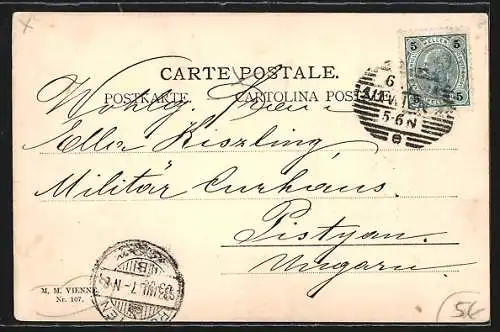 CARTE POSTALE.
POSTKARTE CARTOLINA POSTALE
Wohlg.
Ella Kiszling
Militär Curhaus.
Pistyan.
Ungarn.
M. M. VIENNE
Nr. 107.
5 5
5
6
5-6 N
e